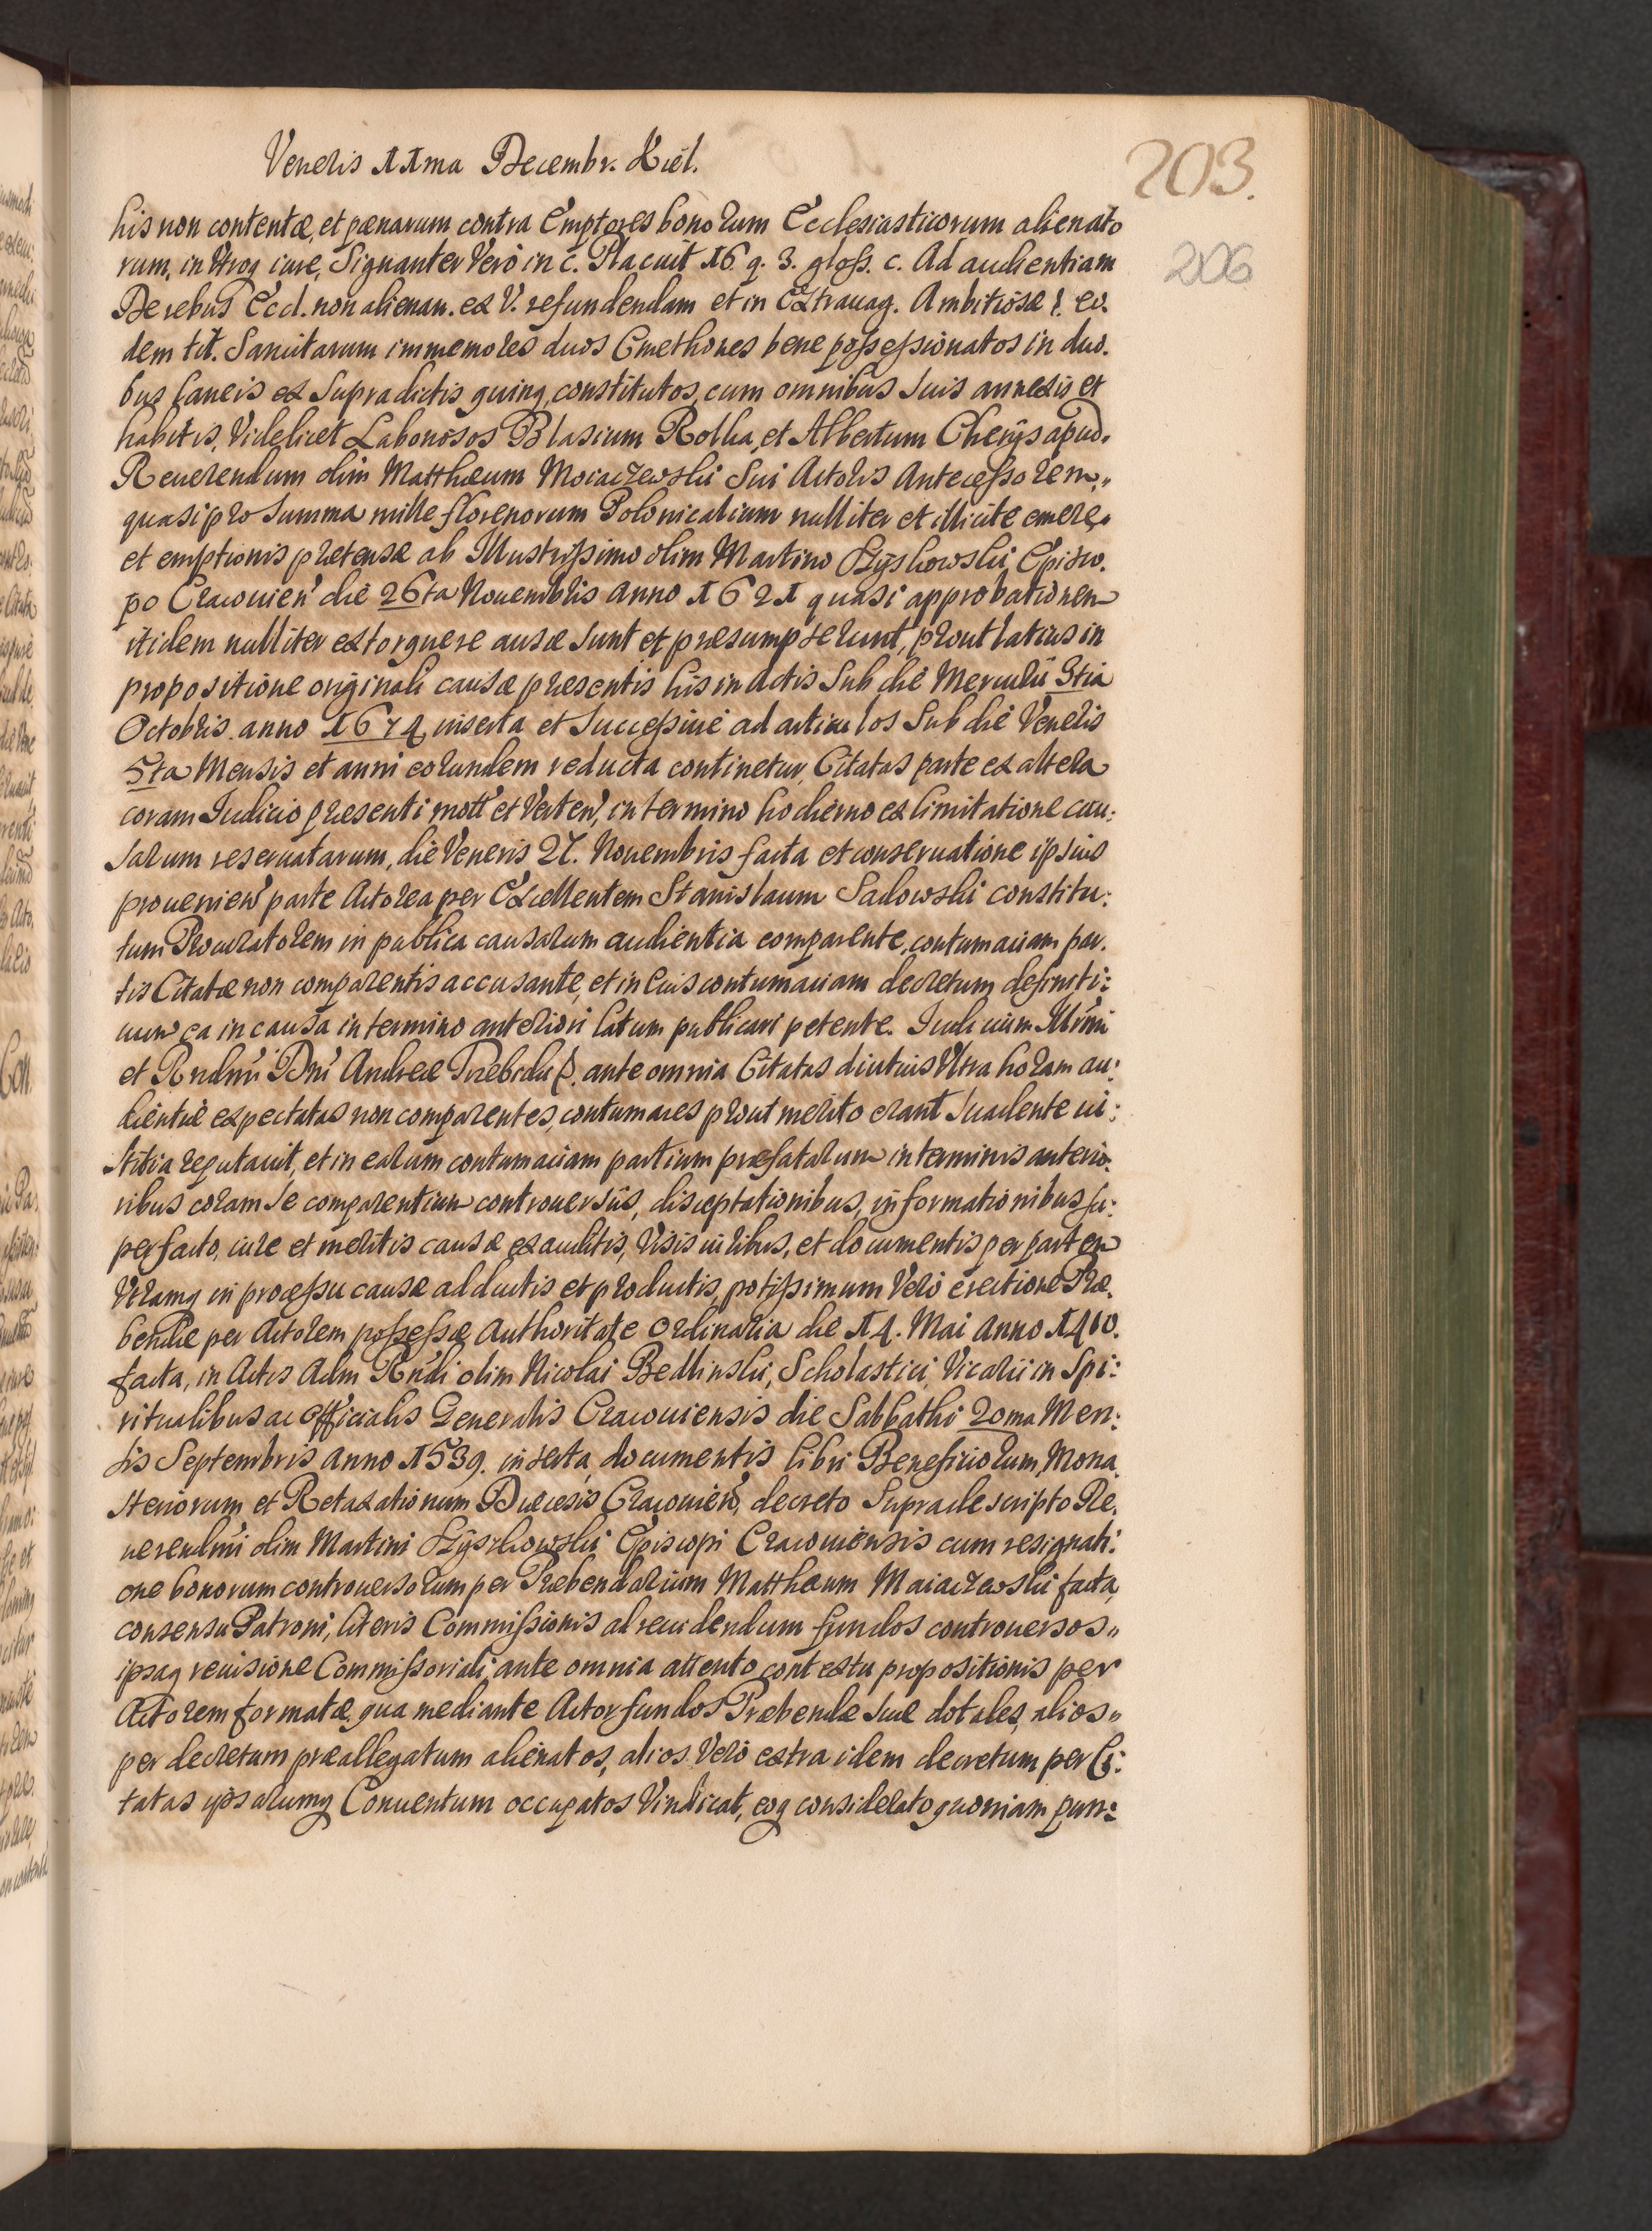 Veneris 11ma Decembr. Kiel.
203.
206
his non contentæ, et pœnarum contra Emptores bonorum Ecclesiasticorum alienato
rum, in Vtroq iure, Signanter Verò in c. Placuit 16 q. 3. gloss. c. Ad audientiam
De rebus Eccl. non alienan. ex V. refundendam et in Extrauag. Ambitiosæ eo.
dem tit. Sancitarum immemores duos Cmethones bene possessionatos in duo.
bus laneis ex Supradictis quinq, constitutos, cum omnibus Suis annexis et
habitis, Videlicet Laboriosos Blasium Rolka, et Albertum Cherÿs apud.
Reuerendum olim Matthæum Moiaczewski Sui Actoris Antecessorem,,
quasi pro Summa mille florenorum Polonicalium nulliter et illicite emere,
et emptionis prætensæ ab Illustrissimo olim Martino Szÿskowski, Episco.
po Cracouien' die 26ta Nouembris anno 1621 quasi approbationem
itidem nulliter extorquere ausæ Sunt et præsumpserunt, prout latius in
propositione originali causæ præsentis his in Actis Sub die Mercurii 3tia
Octobris anno 1674 inserta et Successiuè ad articulos Sub die Veneris
5ta Mensis et anni eorundem reducta continetur, Citatas parte ex altera
coram Iudicio præsenti mott' et Verten', in termino hodierno ex limitatione cau:
sarum reseruatarum, die Veneris 27. Nouembris facta et conseruatione ipsius
prouenien' parte Actorea per Excellentem Stanislaum Sadowski constitu:
tum Procuratorem in publica causarum audientia comparente, contumaciam par.
tis Citatæ non comparentis accusante, et in Eius contumaciam decretum definiti:
uum ea in causa in termino anteriori latum publicari petente. Iudicium Illrmi
et Rndmi Dni Andreæ Trzebicki P. ante omnia Citatas diutius Vltra horam au:
dientiæ expectatas non comparentes, contumaces prout merito erant Suadente iu:
stitia reputauit, et in earum contumaciam partium præfatarum in terminis anterio.
ribus coram Se comparentium controuersiis, disceptationibus, informationibus su:
per facto, iure et meritis causæ exauditis, Visis iuribus, et documentis per partem
Vtramq in processu causæ adductis et productis, potissimum Verò erectione Præ.
bendæ per Actorem possessæ Authoritate Ordinaria die 14. Mai Anno 1410.
facta, in Actis Adm Rndi olim Nicolai Bedlinski, Scholastici, Vicarii in Spi:
ritualibus ac Officialis Generalis Cracouiensis die Sabbathi 20ma Men:
sis Septembris Anno 1539. inserta, documentis libri Beneficiorum, Mona.
steriorum et Retaxationum Diæcesis Cracouien', decreto Supradescripto Re,
uerendmi olim Martini Szÿszkowski Episcopi Cracouiensis cum resignati:
one bonorum controuersorum per Præbendarium Matthæum Maiaczewski facta,
consensu Patroni, literis Commissionis ad reuidendum fundos controuersos,,
ipsaq reuisione Commissoriali, ante omnia attento contextu propositionis per
Actorem formatæ, qua mediante Actor fundos Præbendæ Suæ dotales, alios,,
per decretum præallegatum alienatos, alios Verò extra idem decretum per Ci:
tatas ipsarumq Conuentum occupatos Vindicat, eoq considerato quoniam pun: